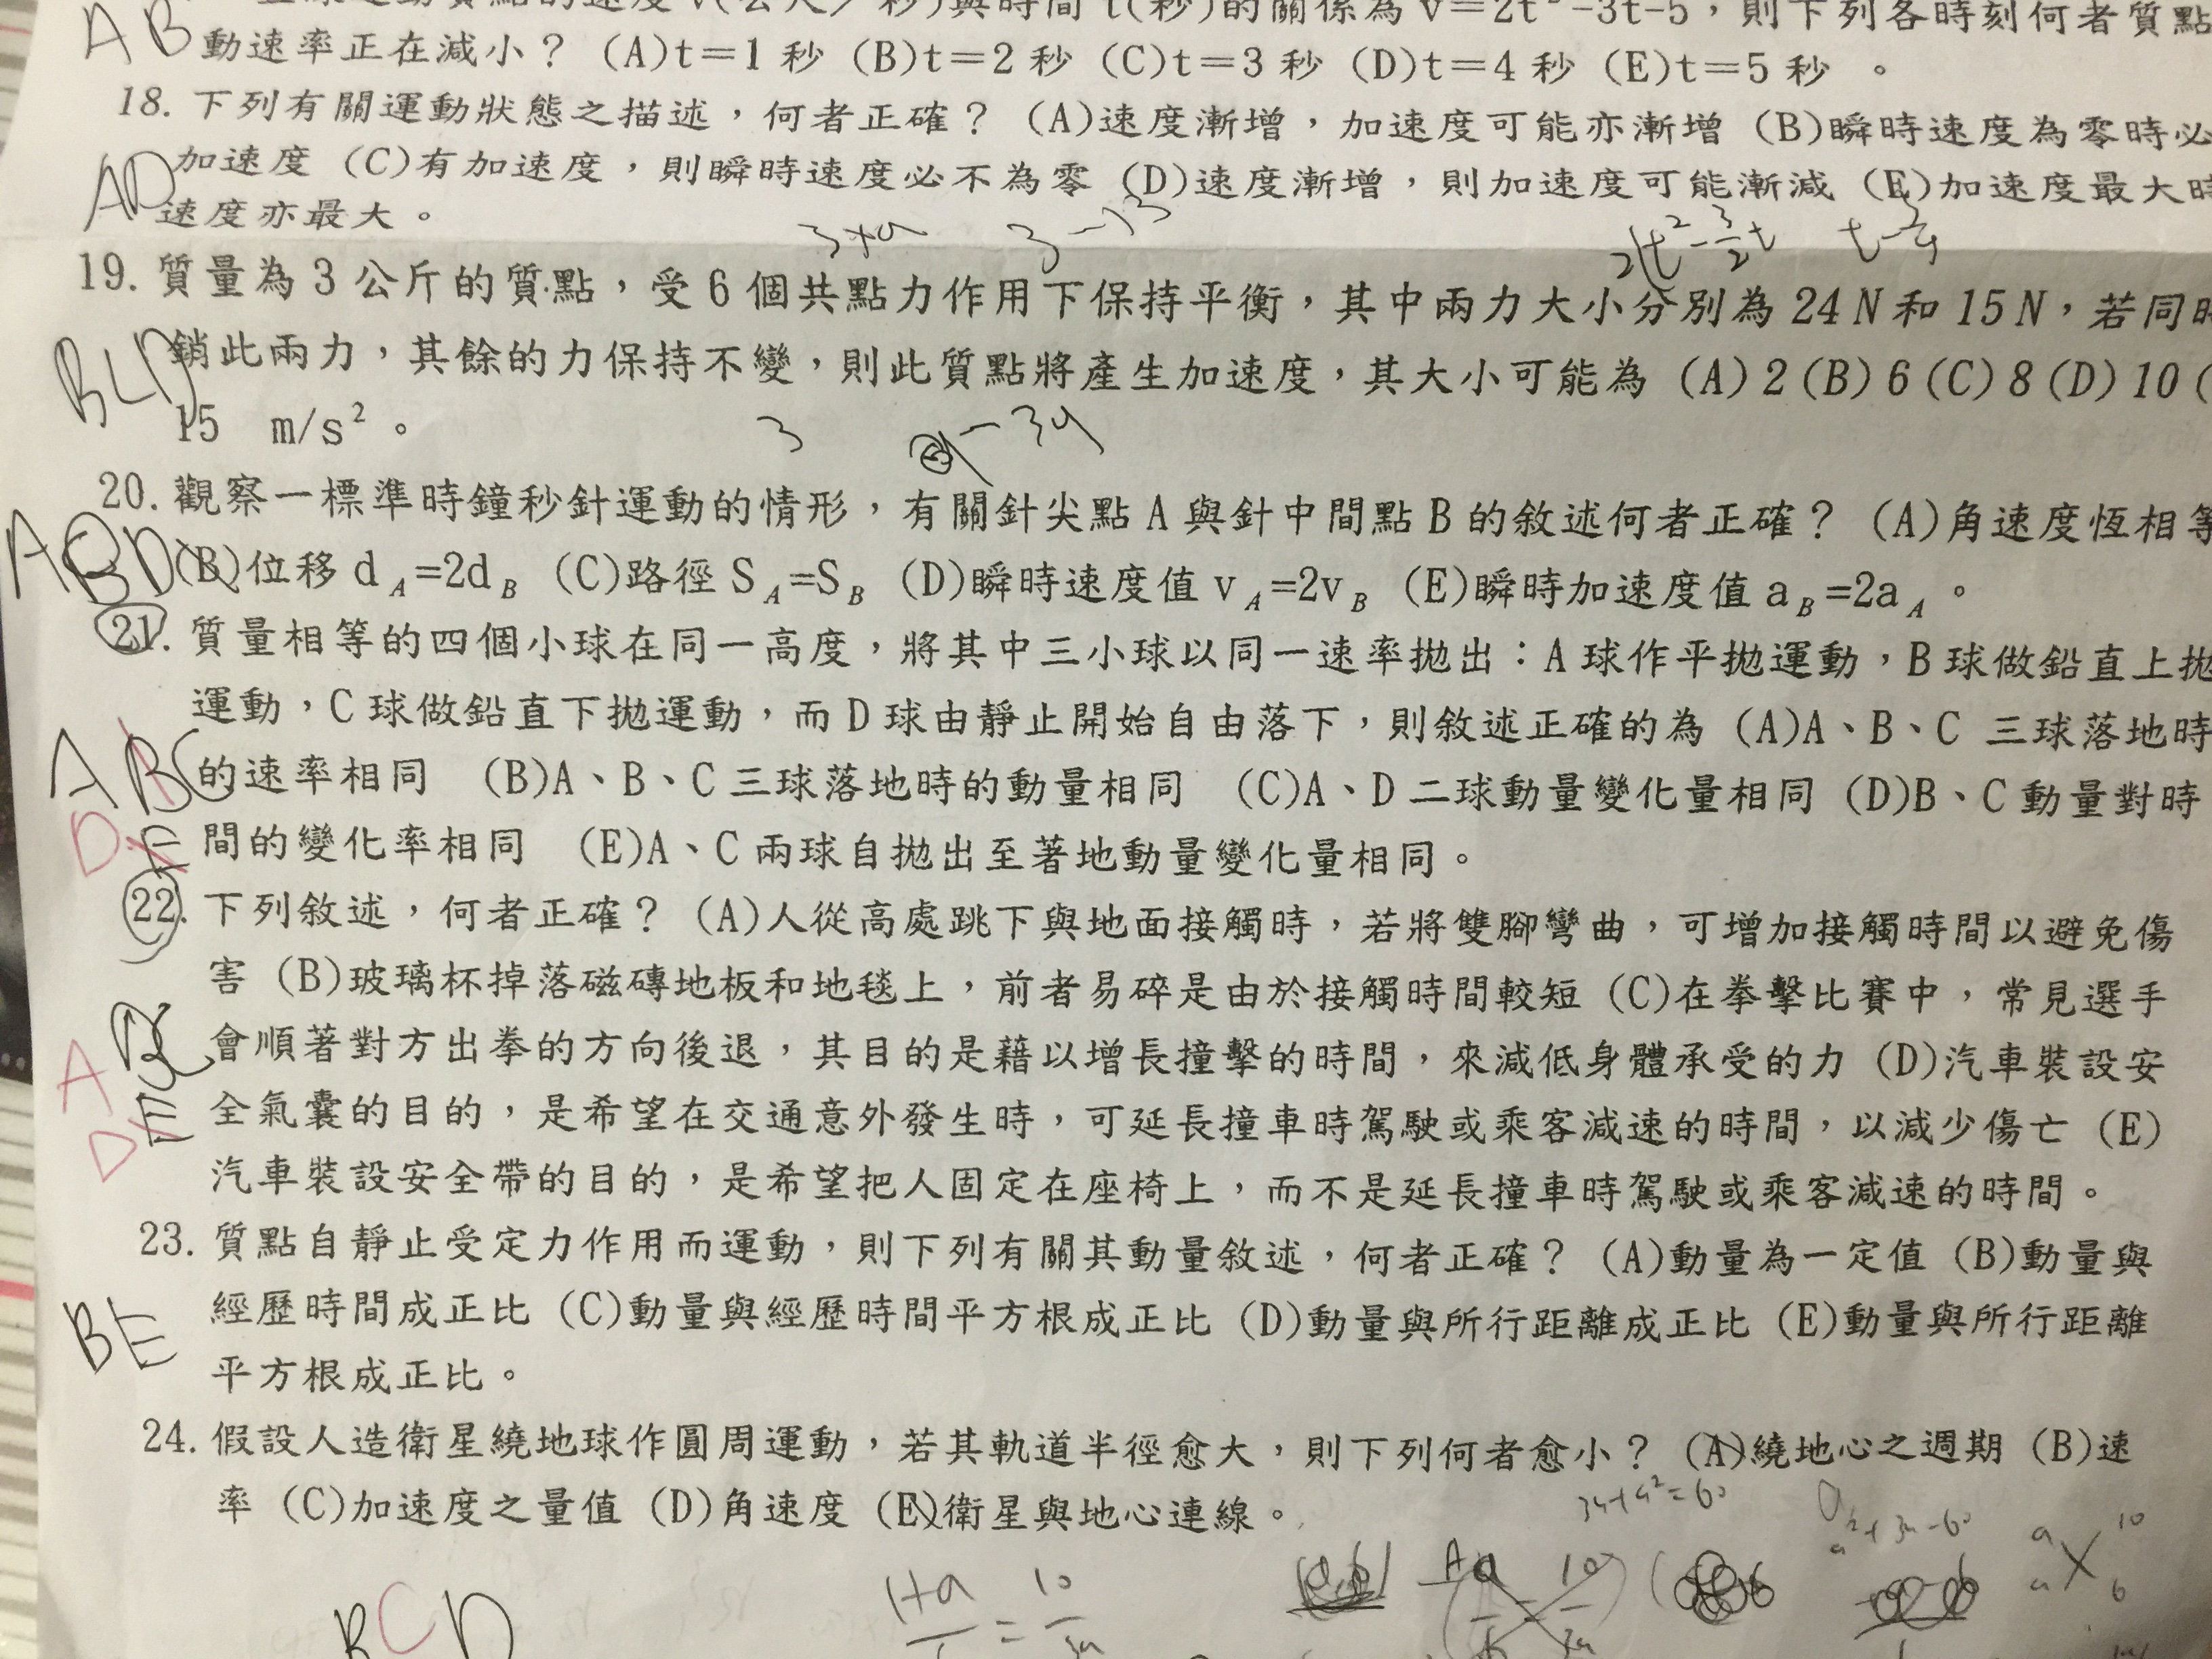 直線運動質點的速度 v(公尺/秒)與時間 t(秒)的關係為 v=2t²-3t-5,則下列各時刻何者質點
AB 動速率正在減小? (A)t=1 秒 (B)t=2 秒 (C)t=3 秒 (D)t=4 秒 (E)t=5 秒 。
18. 下列有關運動狀態之描述,何者正確? (A)速度漸增,加速度可能亦漸增 (B)瞬時速度為零時必
AD 加速度 (C)有加速度,則瞬時速度必不為零 (D)速度漸增,則加速度可能漸減 (E)加速度最大時
速度亦最大。
19. 質量為 3 公斤的質點,受 6 個共點力作用下保持平衡,其中兩力大小分別為 24 N 和 15 N,若同時
BCD 銷此兩力,其餘的力保持不變,則此質點將產生加速度,其大小可能為 (A) 2 (B) 6 (C) 8 (D) 10 (
15 m/s² 。
20. 觀察一標準時鐘秒針運動的情形,有關針尖點 A 與針中間點 B 的敘述何者正確? (A)角速度恆相等
ABD (B)位移 d_A=2d_B (C)路徑 S_A=S_B (D)瞬時速度值 v_A=2v_B (E)瞬時加速度值 a_B=2a_A 。
21. 質量相等的四個小球在同一高度,將其中三小球以同一速率拋出:A 球作平拋運動,B 球做鉛直上拋
運動,C 球做鉛直下拋運動,而 D 球由靜止開始自由落下,則敘述正確的為 (A)A、B、C 三球落地時
ABC 的速率相同 (B)A、B、C 三球落地時的動量相同 (C)A、D 二球動量變化量相同 (D)B、C 動量對時
D E 間的變化率相同 (E)A、C 兩球自拋出至著地動量變化量相同。
22. 下列敘述,何者正確? (A)人從高處跳下與地面接觸時,若將雙腳彎曲,可增加接觸時間以避免傷
害 (B)玻璃杯掉落磁磚地板和地毯上,前者易碎是由於接觸時間較短 (C)在拳擊比賽中,常見選手
A BC 會順著對方出拳的方向後退,其目的是藉以增長撞擊的時間,來減低身體承受的力 (D)汽車裝設安
D E 全氣囊的目的,是希望在交通意外發生時,可延長撞車時駕駛或乘客減速的時間,以減少傷亡 (E)
汽車裝設安全帶的目的,是希望把人固定在座椅上,而不是延長撞車時駕駛或乘客減速的時間。
23. 質點自靜止受定力作用而運動,則下列有關其動量敘述,何者正確? (A)動量為一定值 (B)動量與
BE 經歷時間成正比 (C)動量與經歷時間平方根成正比 (D)動量與所行距離成正比 (E)動量與所行距離
平方根成正比。
24. 假設人造衛星繞地球作圓周運動,若其軌道半徑愈大,則下列何者愈小? (A)繞地心之週期 (B)速
率 (C)加速度之量值 (D)角速度 (E)衛星與地心連線。
3a+a²=60
BCD